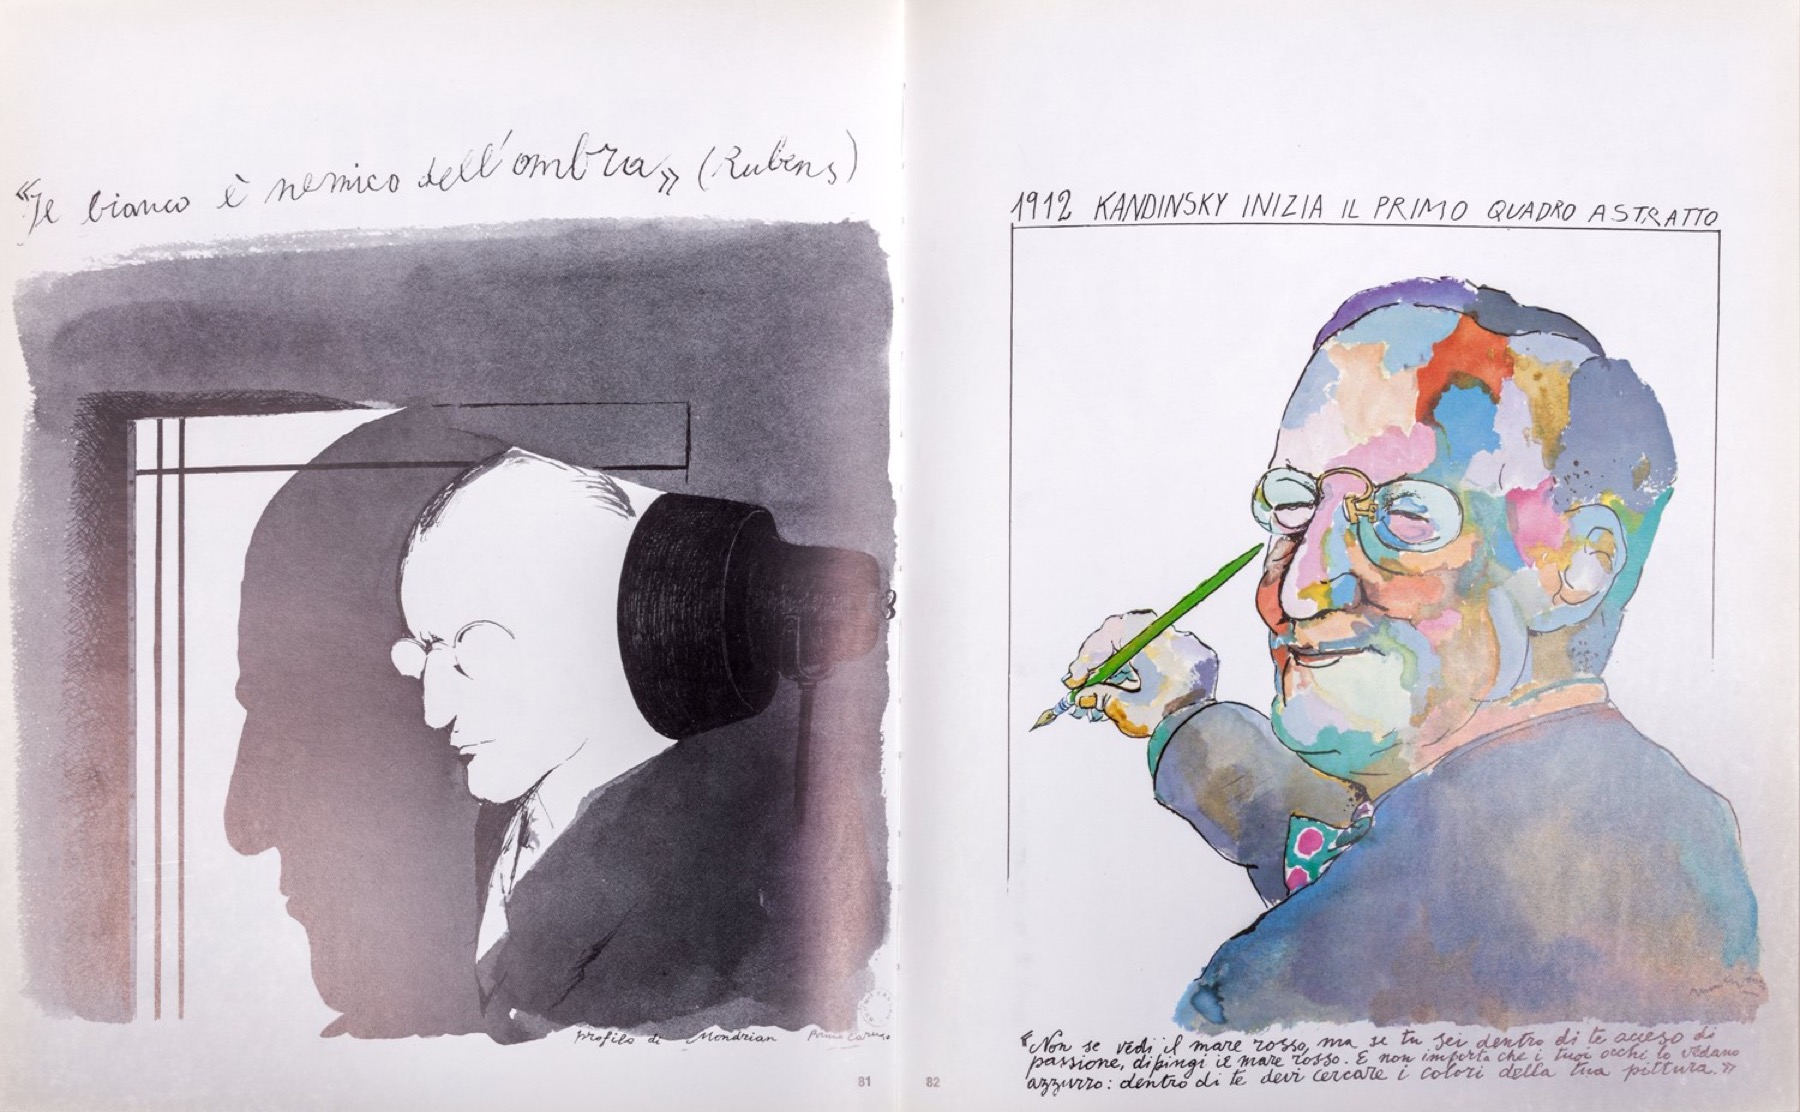 «Il bianco è nemico dell'ombra» (Rubens)
Profilo di Mondrian Bruno Caruso
81
1912 KANDINSKY INIZIA IL PRIMO QUADRO ASTRATTO
«Non se vedi il mare rosso, ma se tu sei dentro di te acceso di
passione, dipingi il mare rosso. E non importa che i tuoi occhi lo vedano
azzurro: dentro di te devi cercare i colori della tua pittura.»
82